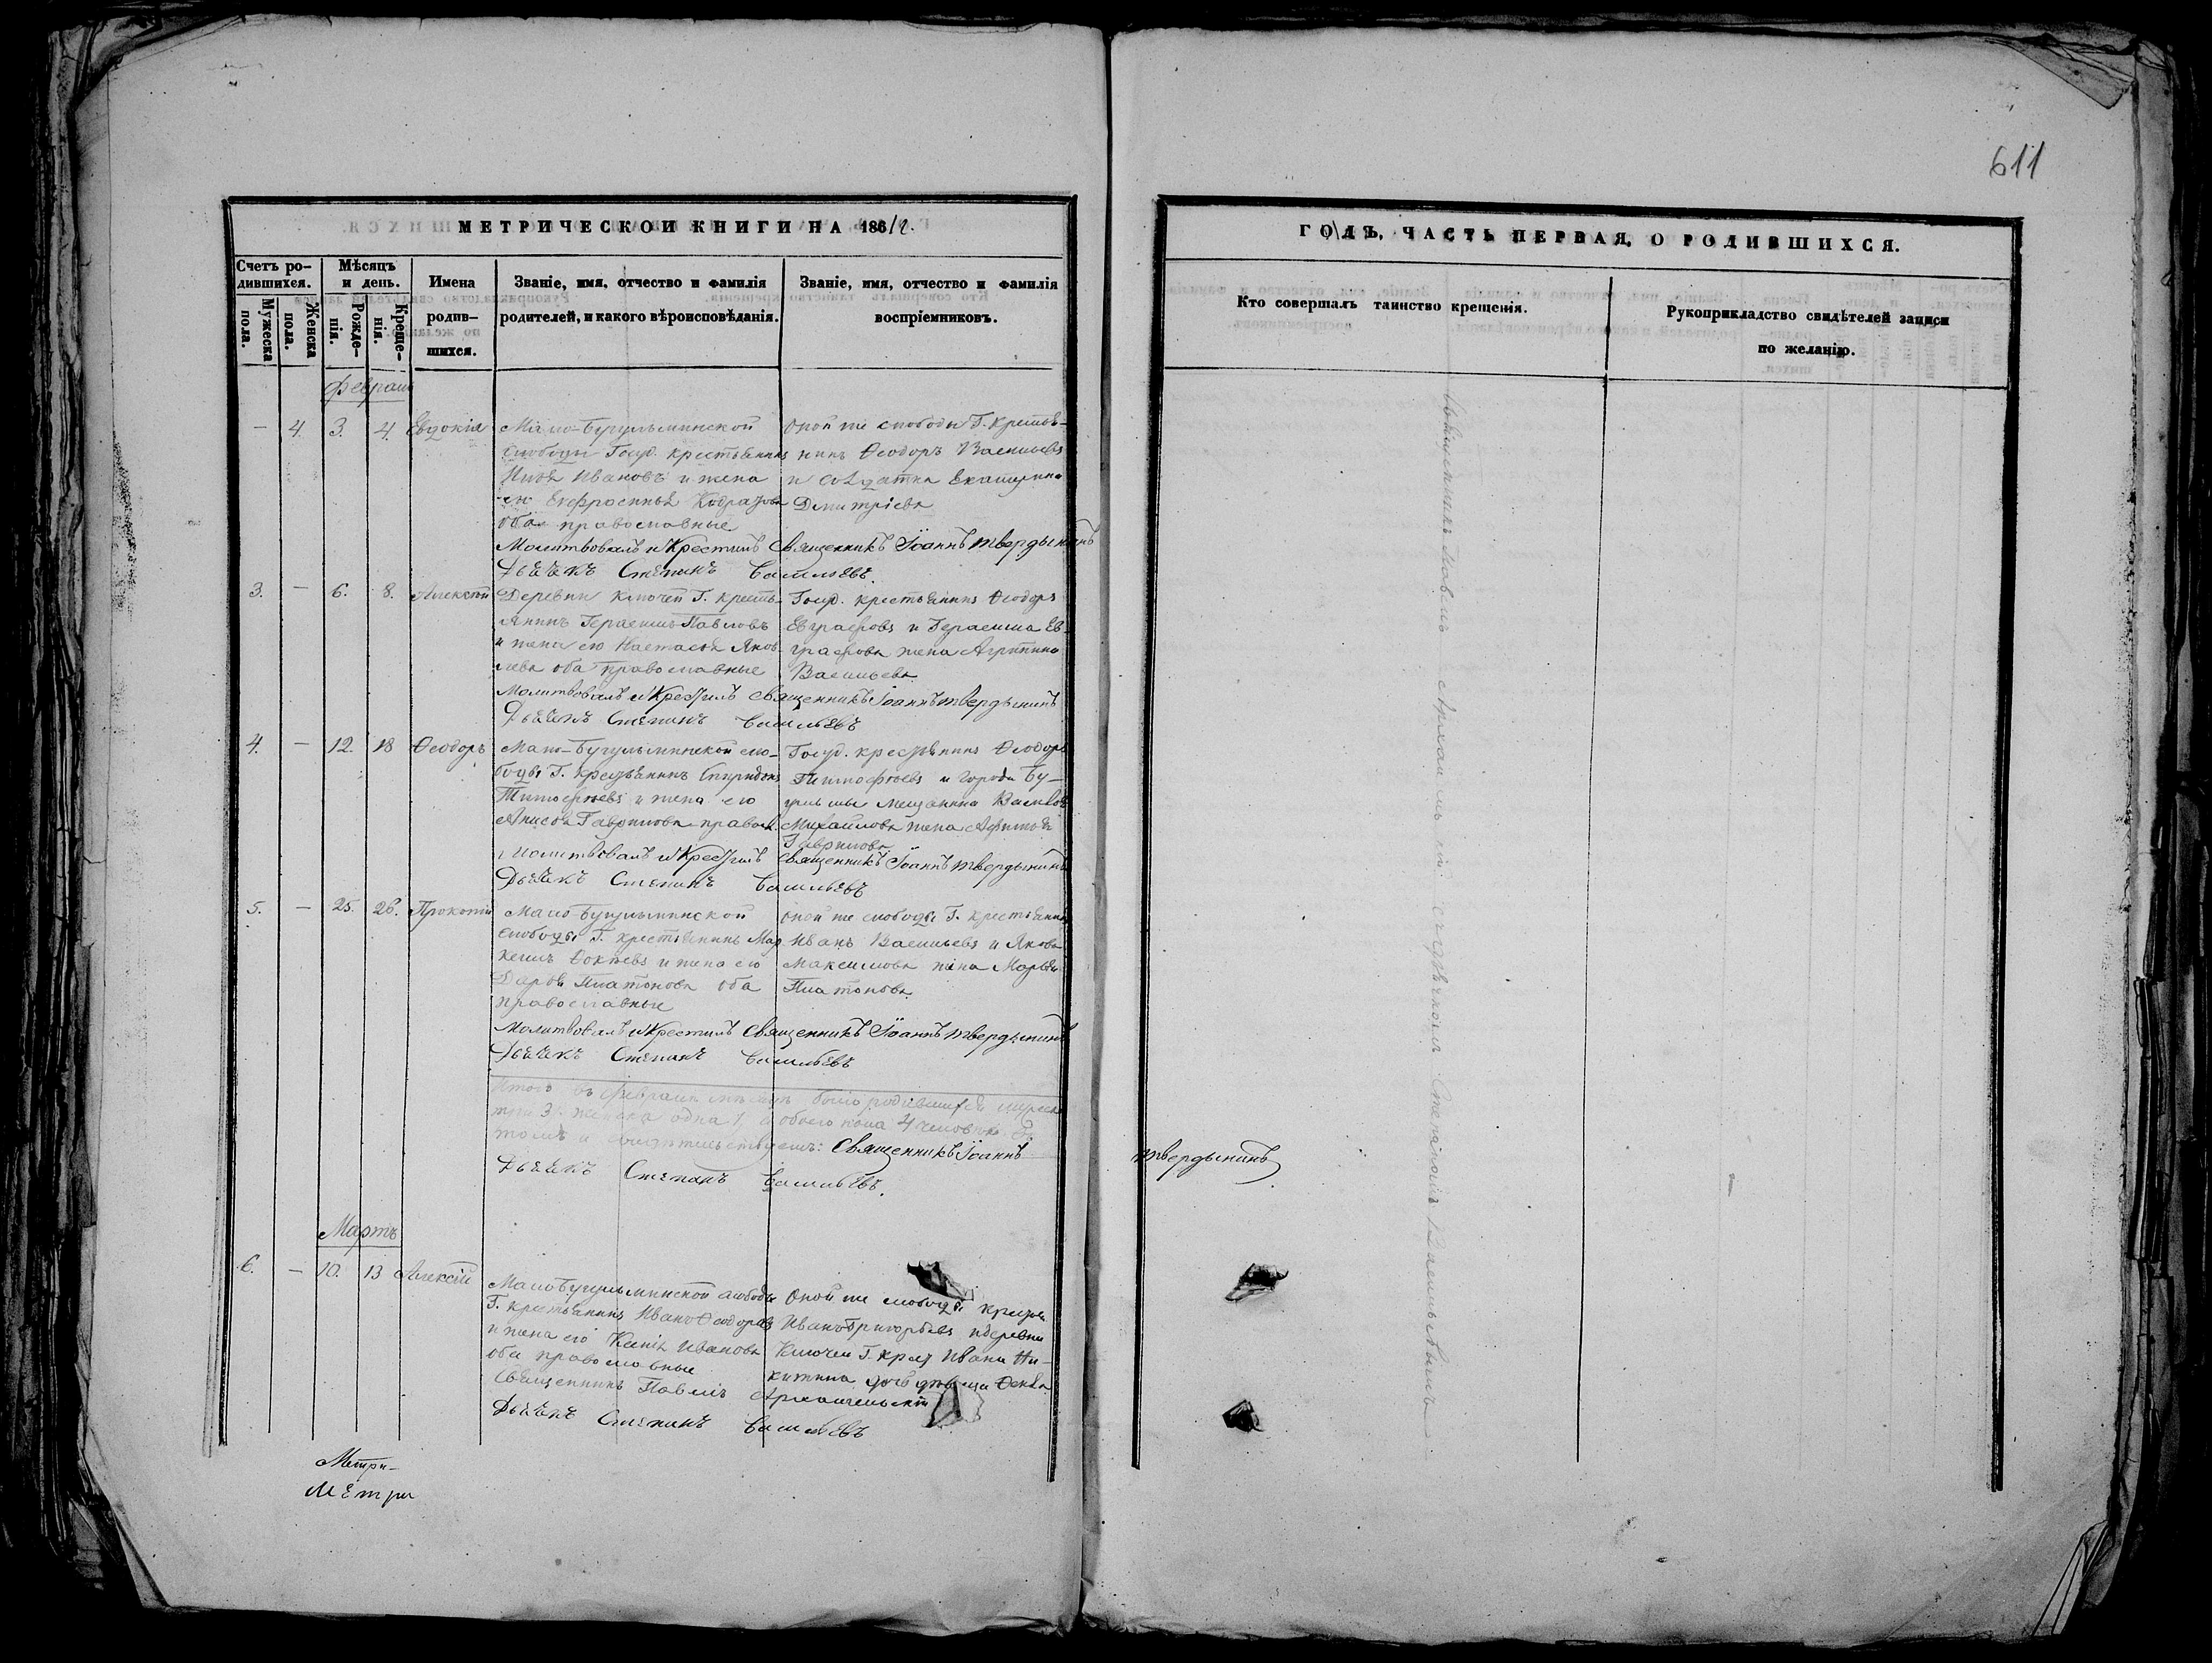 611
МЕТРИЧЕСКОЙ КНИГИ НА 1862.
Счетъ ро-
дившихся.
Мужеска
пола.
Женска
пола.
Мѣсяцъ
и день.
Рожде-
нія.
Креще-
нія.
Имена
родив-
шихся.
Званіе, имя, отчество и фамилія
родителей, и какого вѣроисповѣданія.
Званіе, имя, отчество и фамилія
воспріемниковъ.
Февраль
— 4. 3. 4. Евдокія
Мало-Бугульминской
слободы Госуд. крестьянинъ
Ивановъ и жена
его Ефросинья
оба православные
оной же слободы Г. крестья-
нинъ Ѳеодоръ Васильевъ
и солдатка Екатерина
Дмитріева
Молитвовалъ и Крестилъ Священникъ Іоаннъ Твердынинъ
Дьячекъ Степанъ Васильевъ.
3. — 6. 8. Алексѣй
Деревни Ключей Г. кресть-
янинъ Герасимъ Павловъ
и жена его Настасья Яков-
лева оба православные
Госуд. крестьянинъ Ѳеодоръ
Евграфовъ и Герасима Ев-
графова жена Агрипина
Васильева
Молитвовалъ и Крестилъ Священникъ Іоаннъ Твердынинъ
Дьячекъ Степанъ Васильевъ
4. — 12. 18 Ѳеодоръ
Мало-Бугульминской сло-
боды Г. крестьянинъ Спиридонъ
Тимофѣевъ и жена его
Анисья Гаврилова правосл.
Госуд. крестьянинъ Ѳеодоръ
Тимофѣевъ и города Бу-
гульмы мещанина
Михайлова жена
Гаврилова
Молитвовалъ и Крестилъ Священникъ Іоаннъ Твердынинъ
Дьячекъ Степанъ Васильевъ
5. — 25. 26. Прокопій
Мало-Бугульминской
слободы Г. крестьянинъ Мар-
кеилъ и жена его
Дарья Платонова оба
православные
оной же слободы Г. крестьянинъ
Иванъ Васильевъ и Якова
Максимова жена Марья
Платонова
Молитвовалъ и Крестилъ Священникъ Іоаннъ Твердынинъ
Дьячекъ Степанъ Васильевъ
Итого въ Февралѣ мѣсяцѣ было родившихся мужеска
3. женска одна 1, а обоего пола 4 человѣка. Въ
томъ и свидѣтельствуемъ: Священникъ Іоаннъ
Дьячекъ Степанъ Васильевъ.
Мартъ
6. — 10. 13 Алексій
Мало Бугульминской слободы
Г. крестьянинъ Иванъ Ѳеодоровъ
и жена его Ксенія Иванова
оба православные
оной же слободы крестьян.
Иванъ Григорьевъ и деревни
Ключей Г. крест. Ивана Ни-
китина дочь дѣвица Ѳекла
Священникъ Павелъ Архангельскій
Дьячекъ Степанъ Васильевъ
Метри-
Метри
ГОДЪ, ЧАСТЬ ПЕРВАЯ, О РОДИВШИХСЯ.
Кто совершалъ таинство крещенія.
Рукоприкладство свидѣтелей записи
по желанію.
Твердынинъ